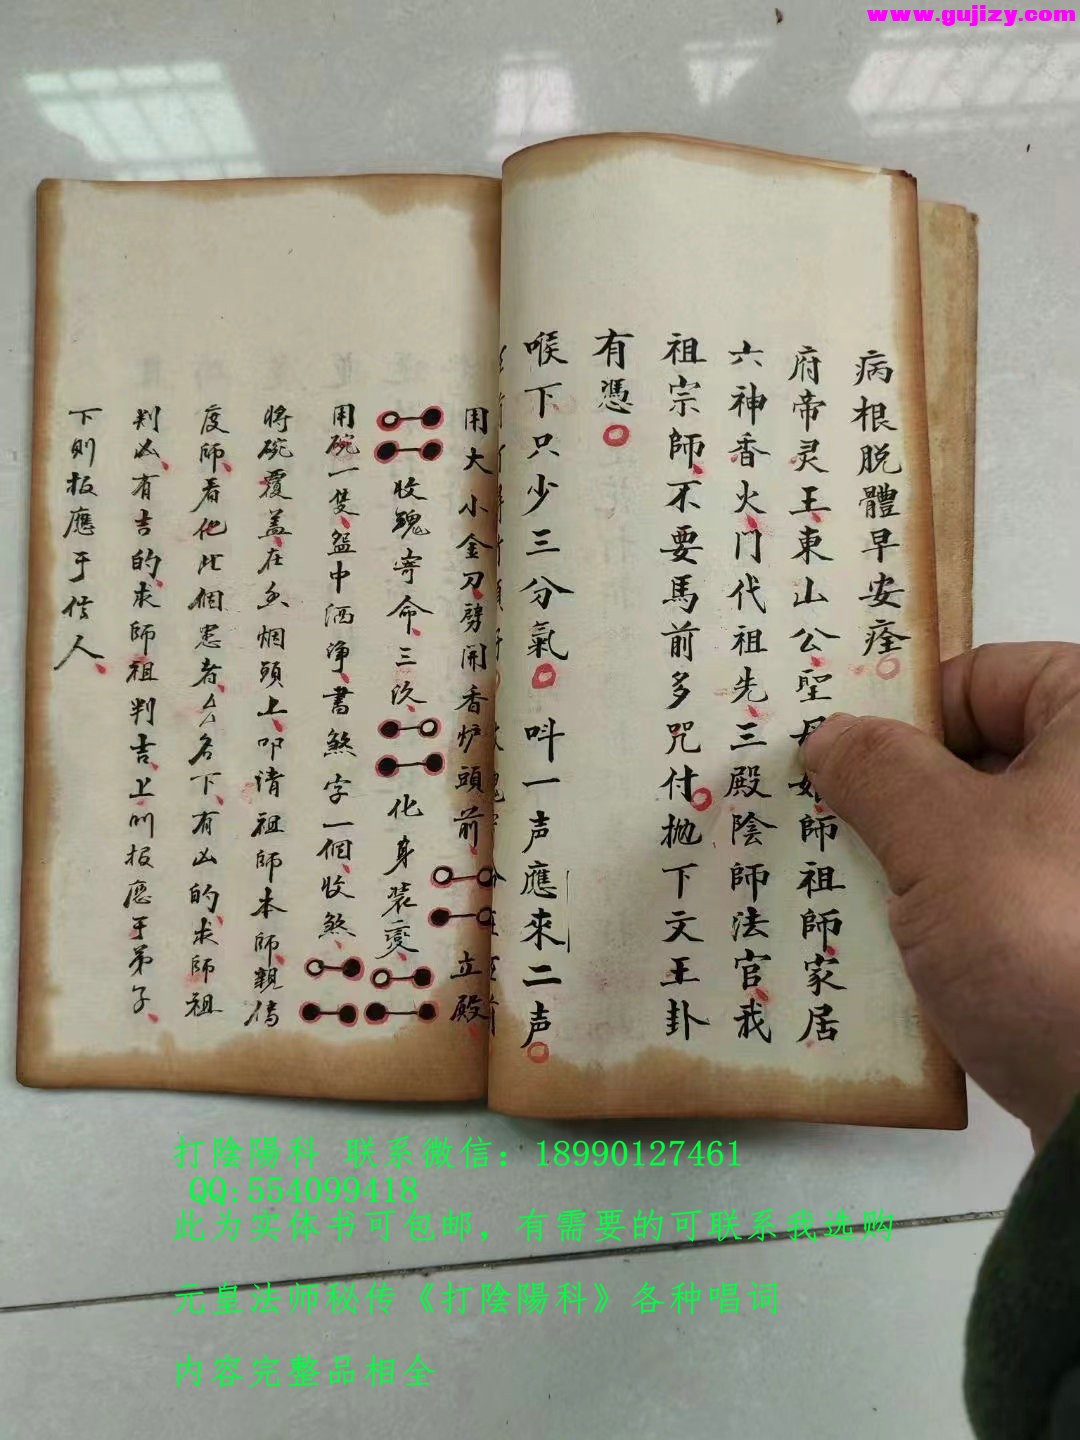 www.gujizy.com
病根脱體早安痊
府帝灵王東山公聖母娘師祖師家居
六神香火門代祖先三殿陰師法官我
祖宗師不要馬前多咒付抛下文王卦
有憑
喉下只少三分氣 呌一声應來二声
用大小金刀劈開香炉頭前 立殿
收魂寄命三次 化身装變
用碗一隻盌中洒净書煞字一個收煞
將碗覆盖在香烟頭上叩请祖師本師親傳
度師看他比個患者厶名下有凶的求師祖
判凶有吉的求師祖判吉上則报應于弟子
下则报應于信人
打陰陽科 联系微信：18990127461
QQ:554099418
此为实体书可包邮，有需要的可联系我选购
元皇法师秘传《打陰陽科》各种唱词
内容完整品相全